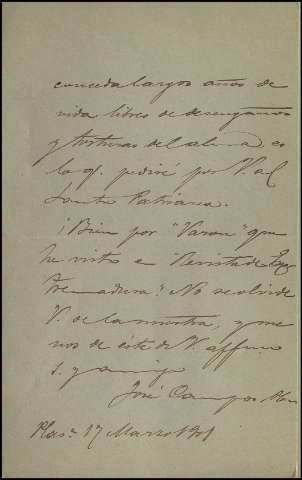 conceda largos años de
vida libres de desengaños
y torturas del alma es
lo q. pediré por V. al
Santo Patriarca.
¡Bien por "Varon" que
he visto en "Revista de Ex
tremadura". No se olvide
V. de la nuestra, y me
nos de este de V. affmo
s. y amigo
José Campos
Plas.ª 17 Marzo 1901